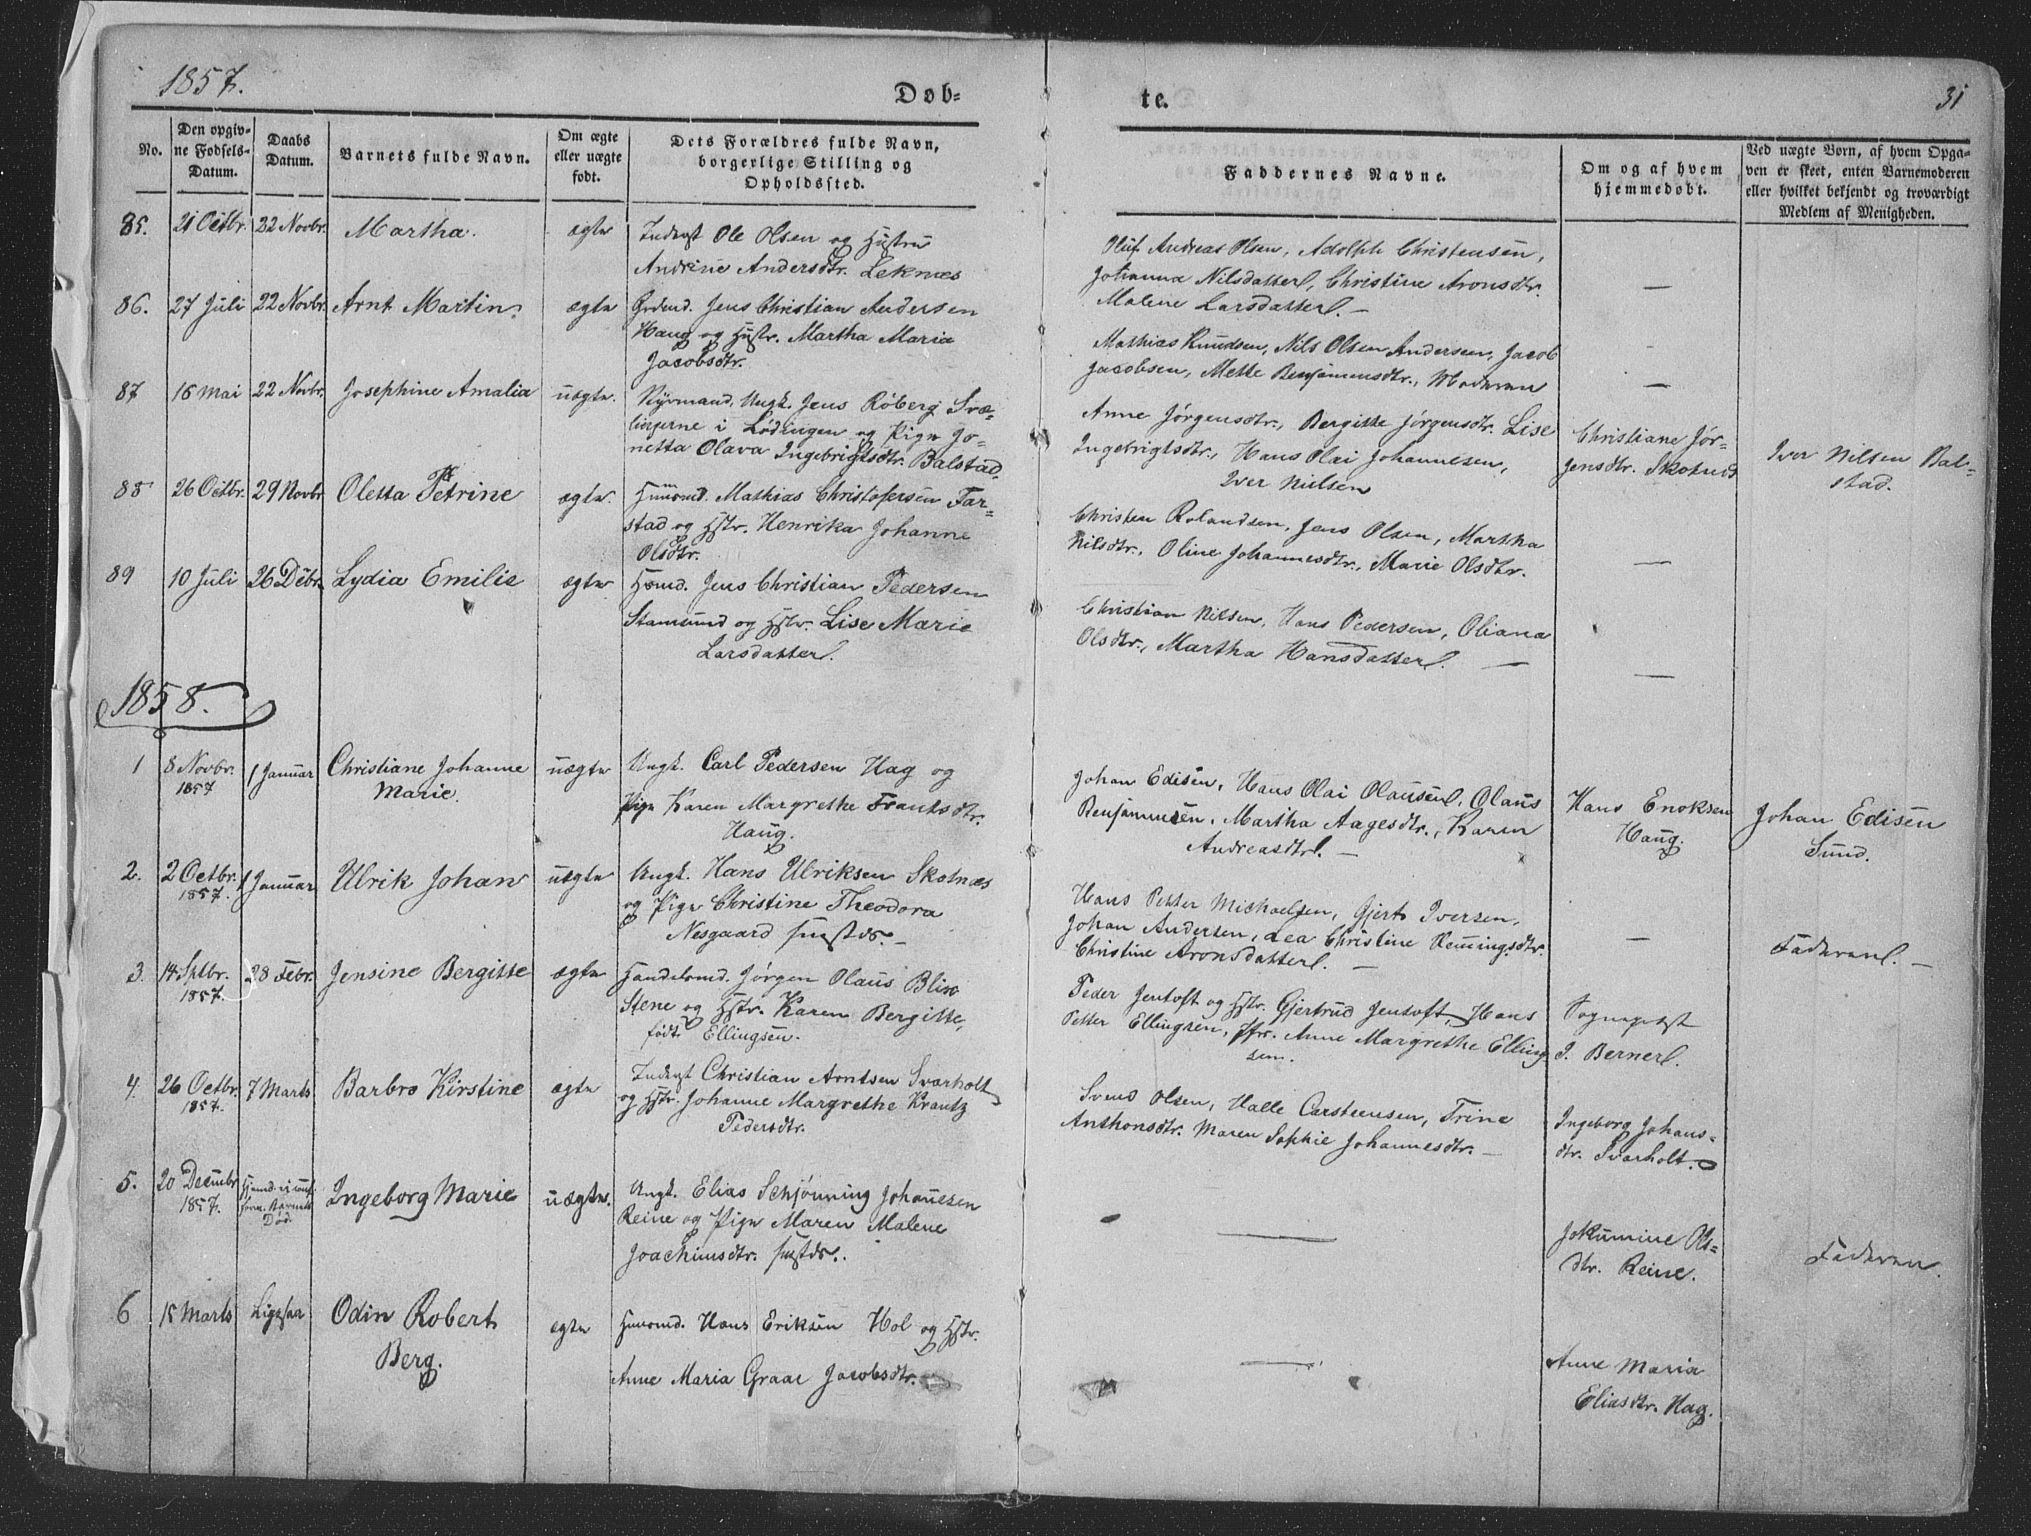 1857.
Døb-
te.
31
No.
Den opgiv-
ne Fødsels-
Datum.
Daabs
Datum.
Barnets fulde Navn.
Om ægte
eller uægte
født.
Dets Forældres fulde Navn,
borgerlige Stilling og
Opholdssted.
Faddernes Navne.
Om og af hvem
hjemmedøbt.
Ved uægte Børn, af hvem Opga-
ven er skeet, enten Barnemoderen
eller hvilket bekjendt og troværdigt
Medlem af Menigheden.
85.
21 Octbr.
22 Novbr.
Martha.
ægte
Inderst Ole Olsen og Hustru
Andrine Andersdtr. Leknæs
Oluf Andreas Olsen, Adolph Christensen,
Johanna Nilsdatter, Christine Aronsdtr.
Malene Larsdatter. —
—
86.
27 Juli
22 Novbr.
Arnt Martin.
ægte
Grdmd. Jens Christian Andersen
Haug og Hustr. Martha Maria
Jacobsdtr.
Mathias Knudsen, Nils Olsen Andersen, Jacob
Jacobsen, Mette Benjaminsdtr., Moderen
—
87
16 Mai
22 Novbr.
Josephine Amalia
uægte.
Ungk. Jens Röberg Svæ-
lingerne i Lødingen og Pige Jo-
netta Olava Ingebrigtsdtr. Balstad.
Anne Jørgensdtr., Bergitte Jørgensdtr. Lise
Ingebrigtsdtr., Hans Olai Johannesen,
Iver Nielsen
Christiane Jør-
gensdtr. Skotnæs
Iver Nilsen Bal-
stad.
88
26 Octbr.
29 Novbr
Oletta Petrine
ægte
Husmd. Mathias Christofersen Far-
stad og Hstr. Henrika Johanne
Olsdtr.
Christen Rolandsen, Jens Olsen, Martha
Nilsdtr., Oline Johannesdtr., Marie Olsdtr.
—
89
10 Juli
26 Dcbr.
Lydia Emilie
ægte
Hsmd. Jens Christian Pedersen
Stamsund og Hstr. Lise Marie
Larsdatter.
Christian Nilsen, Hans Pedersen, Oliana
Olsdtr., Martha Hansdatter. —
—
1858.
1
8 Novbr.
1857
1 Januar
Christiane Johanne
Marie.
uægte
Ungk. Carl Pedersen Hag og
Pige Karen Margrethe Frantsdtr.
Haug.
Johan Edisen, Hans Olai Olausen, Olaus
Benjaminsen, Martha Aagesdtr., Karen
Andreasdtr. —
Hans Enoksen
Haug.
Johan Edisen
Sund.
2.
2 Octbr.
1857.
1 Januar
Ulrik Johan
uægte
Ungk. Hans Ulriksen Skotnæs
og Pige Christine Theodora
Nesgaard smstds. —
Hans Petter Michaelsen, Gjert Iversen,
Johan Andersen, Lea Christine Hemingsdtr.
Christine Aronsdatter. —
—
Faderen. —
3.
14 Sptbr.
1857.
28 Febr.
Jensine Bergitte
ægte
Handelsmd. Jørgen Olaus Blix
Stene og Hstr. Karen Bergitte,
født Ellingsen.
Peder Jentoft og Hstr. Gjertrud Jentoft, Hans
Petter Ellingsen, Jfr. Anne Margrethe Elling
sen.
Sogneprest
J. Berner.
4.
26 Octbr.
1857.
7 Marts
Barbro Kirstine
ægte
Inderst Christian Arntsen Svarholt
og Hstr. Johanne Margrethe Krantz
Pedersdtr.
Svend Olsen, Halle Carsteensen, Trine
Anthonsdtr. Maren Sophie Johannesdtr. —
Ingeborg Johans-
dtr. Svarholt.
5.
20 Decembr
1857.
Død.
Ingeborg Marie
uægte.
Ungk. Elias Schjönning Johansen
Reine og Pige Maren Malene
Joachimsdtr. smstds.
—
Jokumine Ols-
dtr. Reine.
Faderen.
6
15 Marts
Odin Robert
Berg.
ægte
Husmd. Hans Eriksen Hol og Hstr.
Anne Maria Graae Jacobsdtr.
—
Anne Maria
Eliasdtr. Hag.